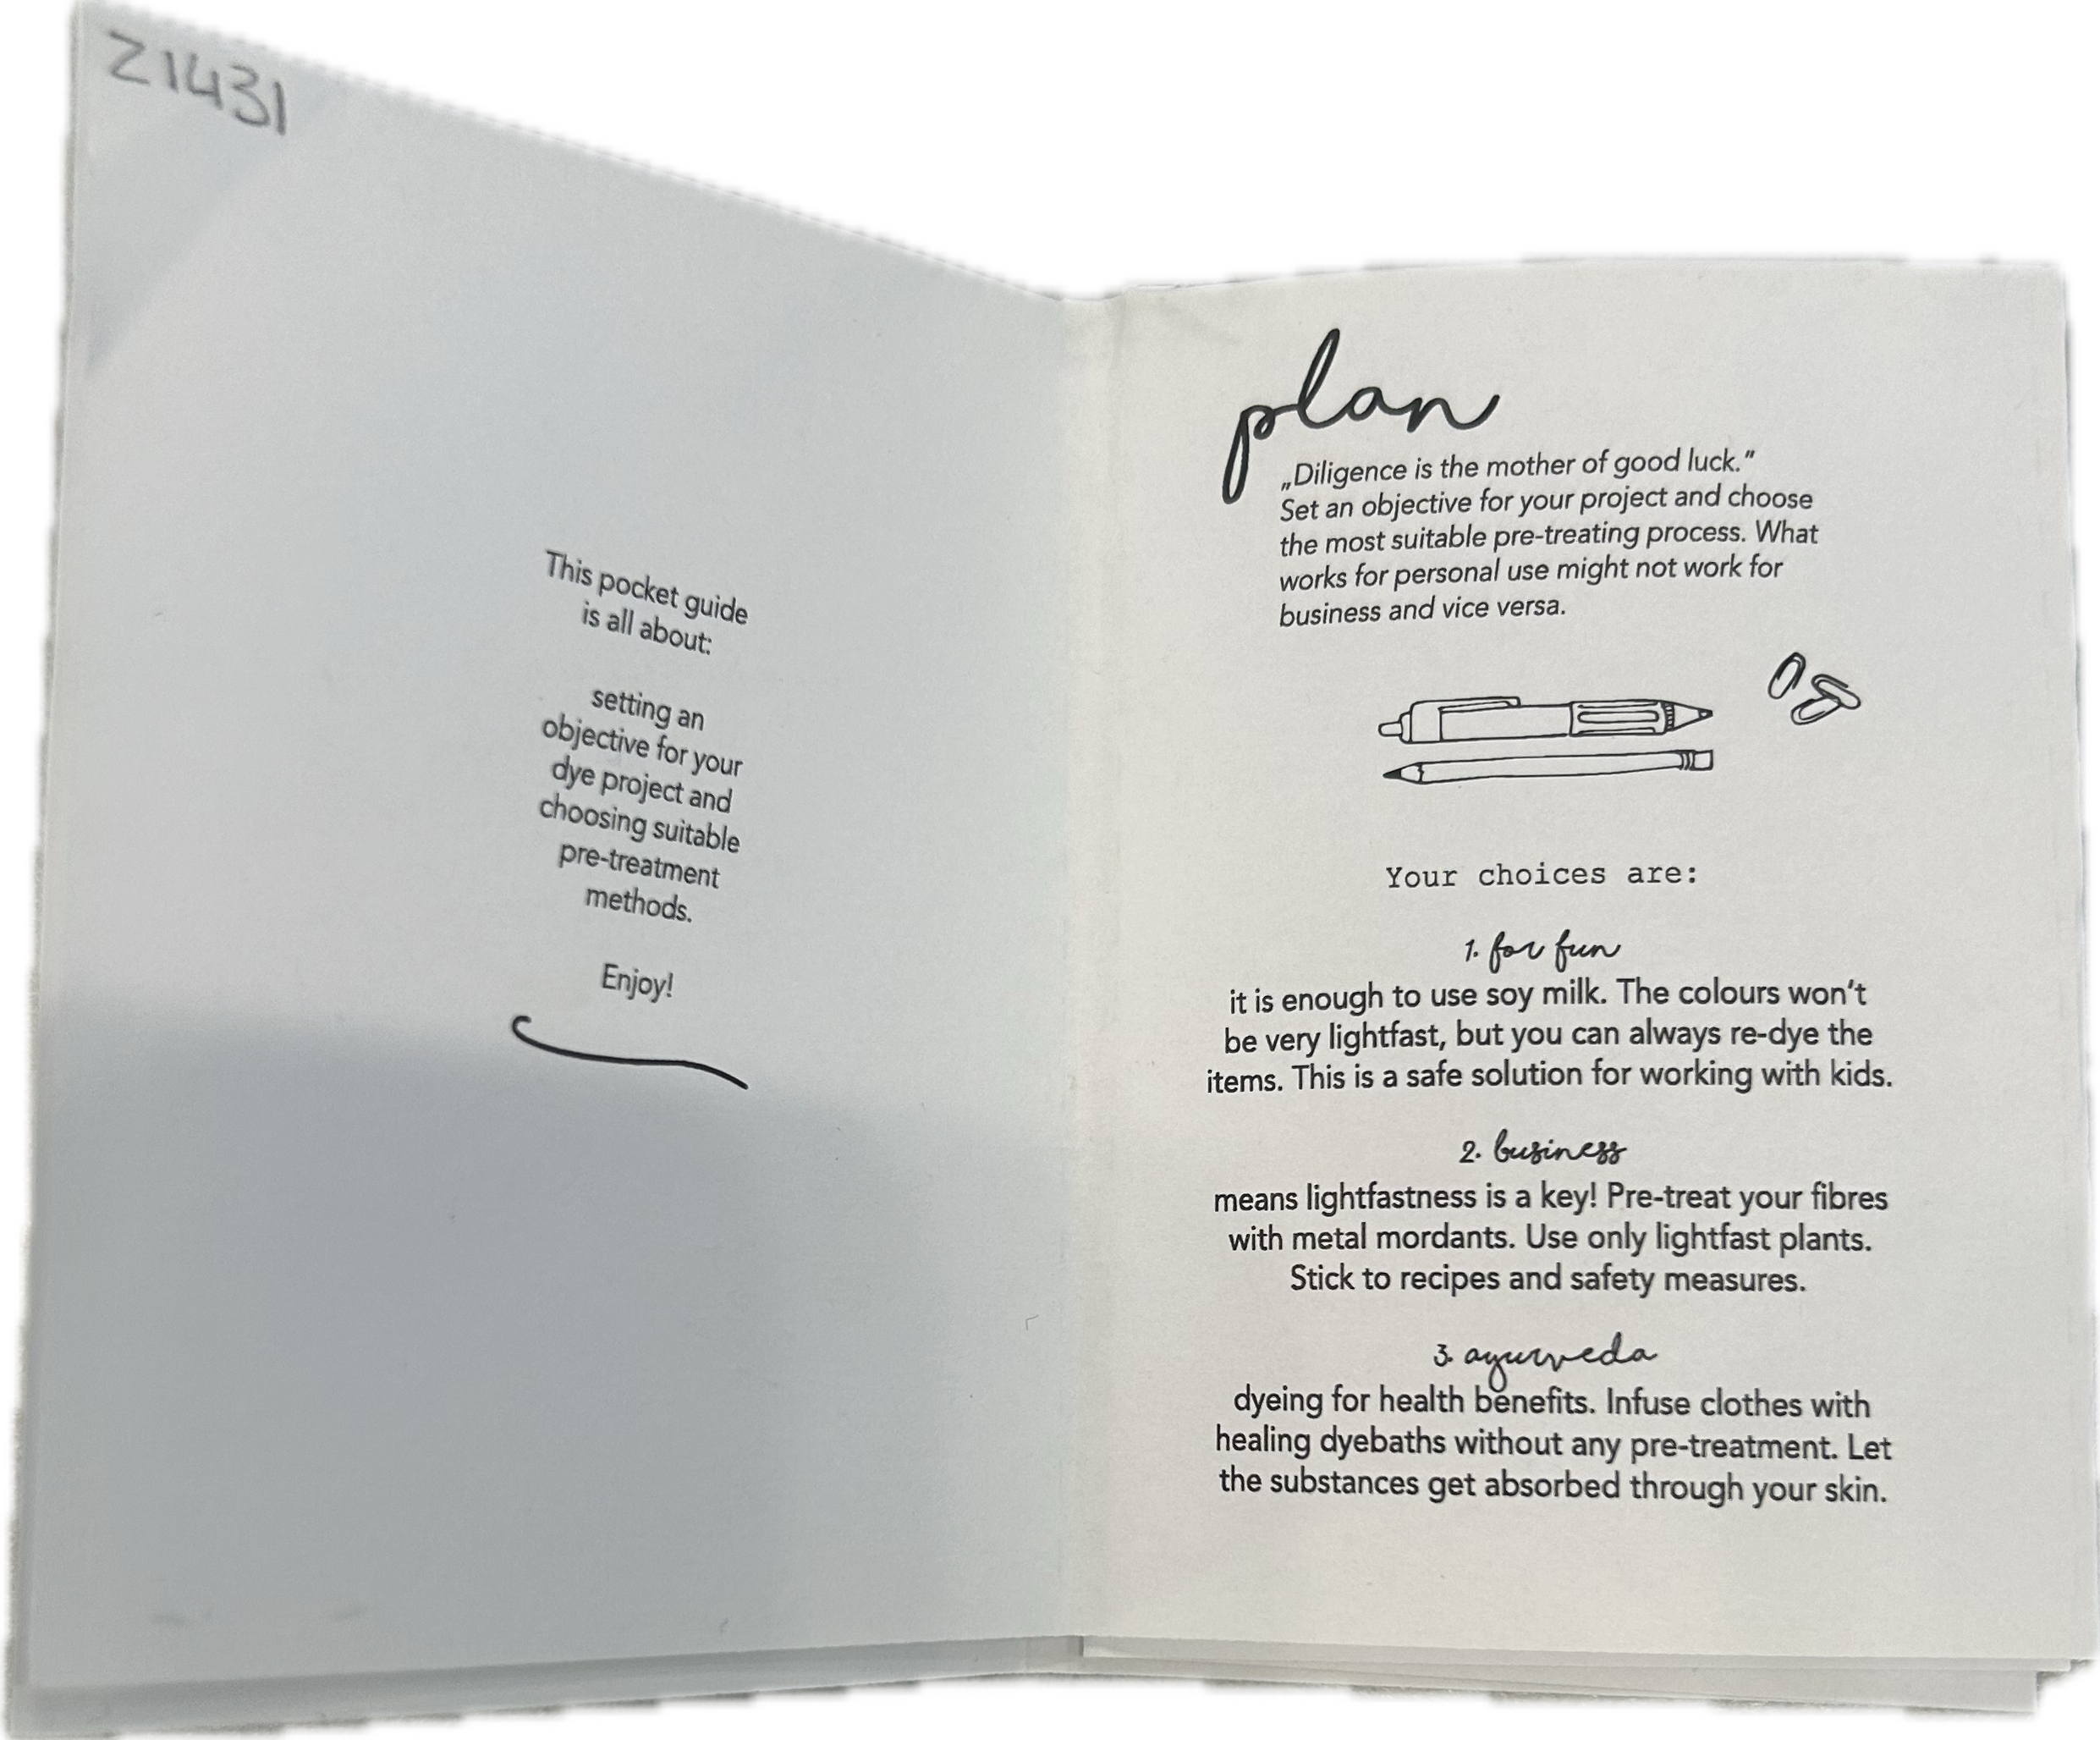 Z1431
This pocket guide
is all about:
setting an
objective for your
dye project and
choosing suitable
pre-treatment
methods.
Enjoy!
plan
„Diligence is the mother of good luck.”
Set an objective for your project and choose
the most suitable pre-treating process. What
works for personal use might not work for
business and vice versa.
Your choices are:
1. for fun
it is enough to use soy milk. The colours won't
be very lightfast, but you can always re-dye the
items. This is a safe solution for working with kids.
2. business
means lightfastness is a key! Pre-treat your fibres
with metal mordants. Use only lightfast plants.
Stick to recipes and safety measures.
3. ayurveda
dyeing for health benefits. Infuse clothes with
healing dyebaths without any pre-treatment. Let
the substances get absorbed through your skin.